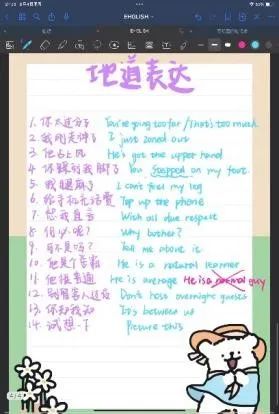 EHGLISH
EHGLISH
地道表达
1. 你太过分了 You're going too far / That's too much
2. 我刚走神了 I just zoned out
3. 他占上风 He's got the upper hand
4. 你踩到我脚了 You stepped on my foot
5. 我腿麻了 I can't feel my leg
6. 给手机充话费 Top up the phone
7. 恕我直言 With all due respect
8. 何必呢? Why bother?
9. 可不是吗? Tell me about it
10. 他是个学霸 He is a natural learner
11. 他很普通 He is average He is a normal guy
12. 别留客人过夜 Don't host overnight guests
13. 你知我知 It's between us
14. 试想一下 Picture this